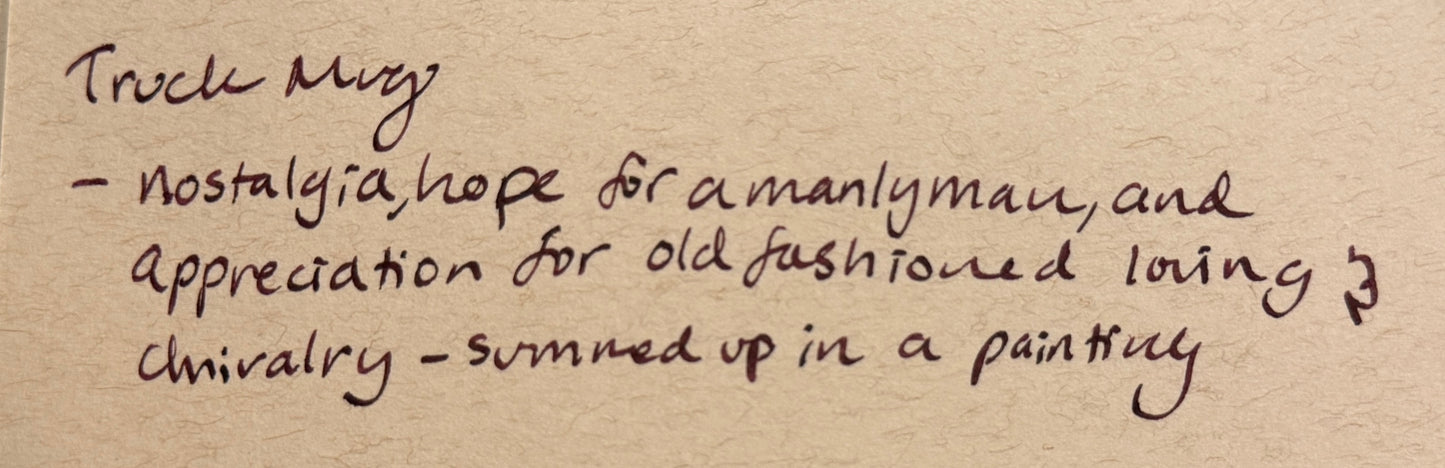 Truck Mug
- nostalgia, hope for a manly man, and
appreciation for old fashioned loving &
chivalry - summed up in a painting